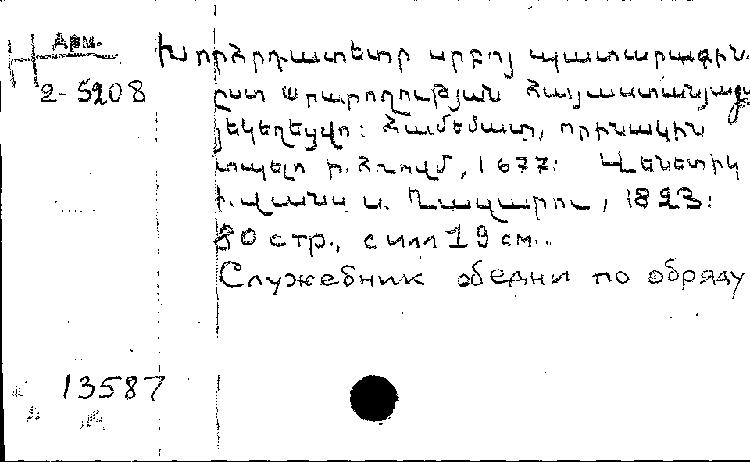 Арм.
2-5208
Խորհրդատետր սրբոյ պատարագին.
ըստ արարողութեան հայաստանեայց
եկեղեցւո: համեմատ, օրինակին
տպելո ի հռովմ, 1677: Վենետիկ
ի վանս ս. Ղազարու, 1823:
80 стр., с илл 19 см.
Служебник обедни по обряду
13587